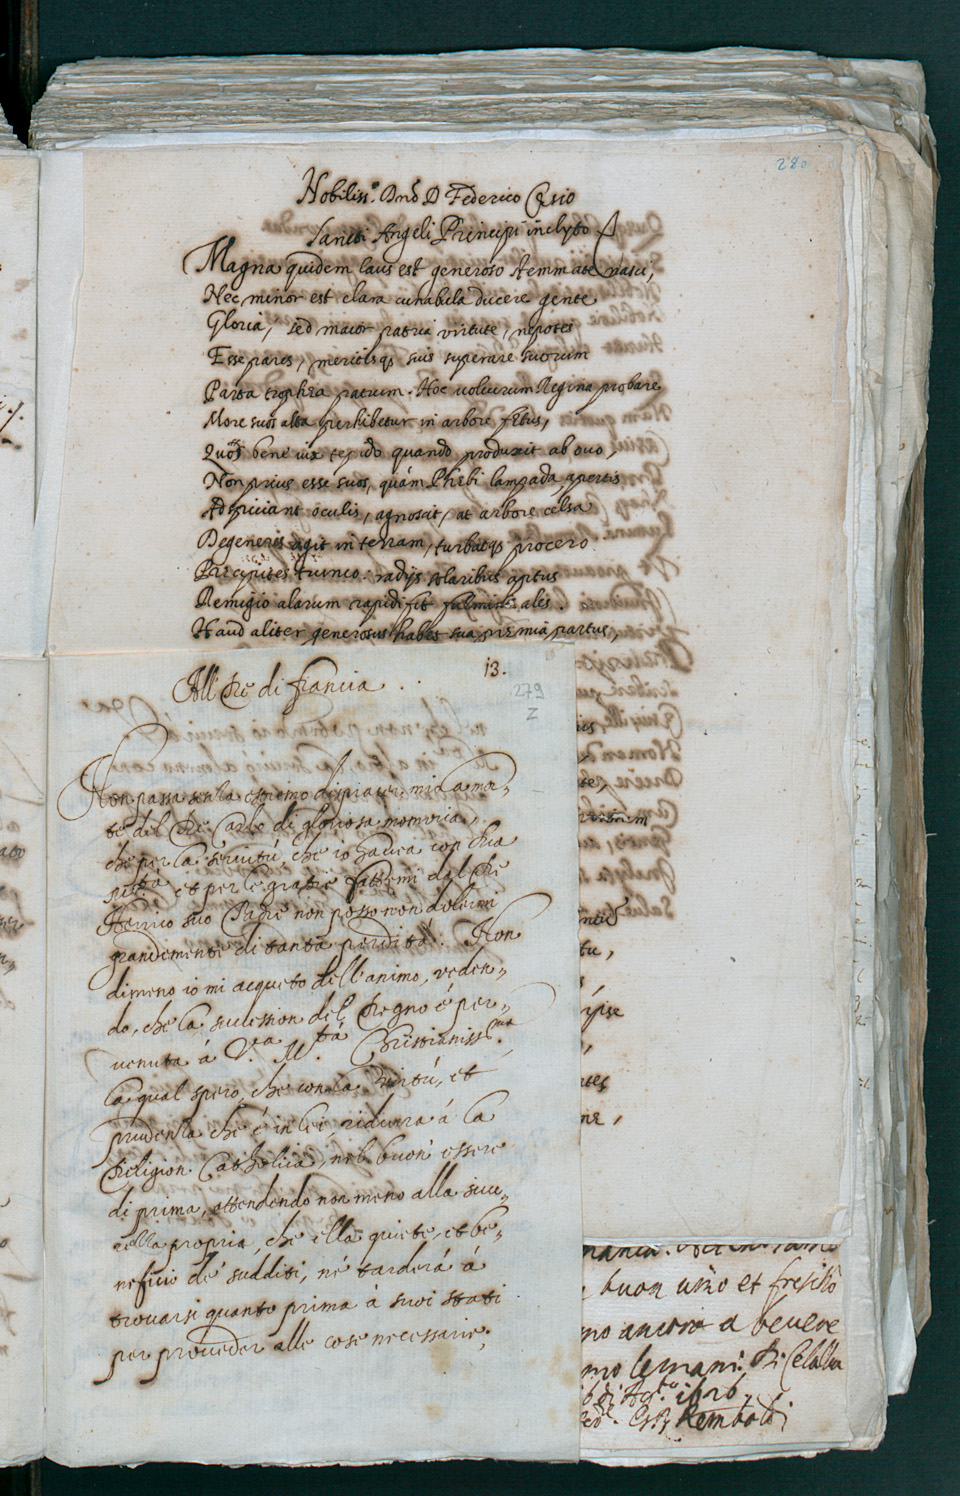 280
Nobiliss.o Dno D Federico Cesio
Sancti Angeli Principi inclyto
Magna quidem laus est generoso stemmate nasci,
Nec minor est clara cunabula ducere gente
Gloria, sed maior patria virtute, nepotes
Esse pares, meritisq; suis superare suorum
Parta trophæa patrum. Hoc volucrum Regina probare
More suos alta perhibetur in arbore fœtus,
Quos bene vix tepido quando produxit ab ovo,
Non prius esse suos, quàm Phœbi lampada apertis
Adspiciant oculis, agnoscit, at arbore celsa
Degeneres agit in terram, turbatq; procero
Præcipites trunco: radijs solaribus aptus
Remigio alarum rapidi fit fulminis ales.
Haud aliter generosus habes sua præmia partus,
13.
279
Z
All Re di francia
Non passa senza estremo dispiacer mio la mor„
te del Re Carlo di gloriosa memoria,
che per la servitù, che io havea con sua
M.tà et per le gratie fattemi dal Re
Henrico suo Padre non posso non dolermi
grandemente di tanta perdita. Non
dimeno io mi acqueto dell'animo, veden„
do, che la succession del Regno è per„
venuta à V.ra M.tà Christianiss.ma,
la qual spero, che con la virtù, et
prudenza che è in lei ridurrà à la
Religion Catholica, nel buon essere
di prima, attendendo non meno alla
propria, che alla quiete, et be„
neficio de' sudditi, né tarderà à
trovarsi quanto prima à suoi stati
per proveder alle cose necessarie;
buon vino et fresco
ancora a bevere
le mani. Di
1626
Remboldi